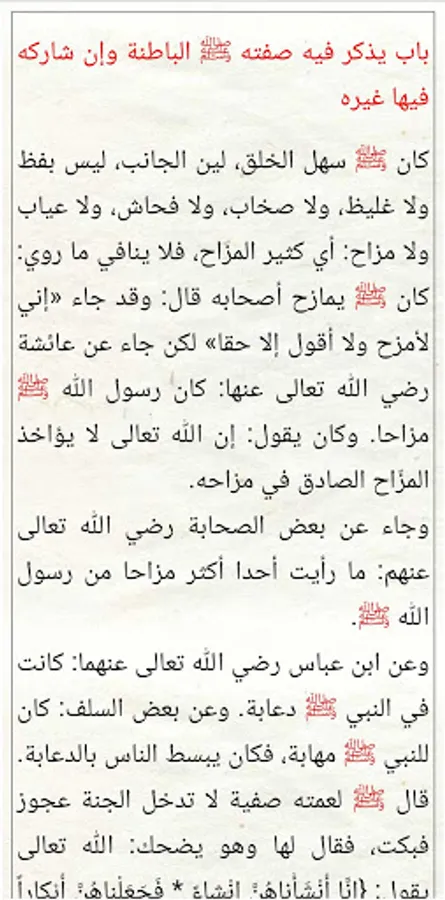 باب يذكر فيه صفته ﷺ الباطنة وإن شاركه
فيها غيره
كان ﷺ سهل الخلق، لين الجانب، ليس بفظ
ولا غليظ، ولا صخاب، ولا فحاش، ولا عياب
ولا مزاح: أي كثير المزَاح، فلا ينافي ما روي:
كان ﷺ يمازح أصحابه قال: وقد جاء «إني
لأمزح ولا أقول إلا حقا» لكن جاء عن عائشة
رضي الله تعالى عنها: كان رسول الله ﷺ
مزاحا. وكان يقول: إن الله تعالى لا يؤاخذ
المزَاح الصادق في مزاحه.
وجاء عن بعض الصحابة رضي الله تعالى
عنهم: ما رأيت أحدا أكثر مزاحا من رسول
الله ﷺ.
وعن ابن عباس رضي الله تعالى عنهما: كانت
في النبي ﷺ دعابة. وعن بعض السلف: كان
للنبي ﷺ مهابة، فكان يبسط الناس بالدعابة.
قال ﷺ لعمته صفية لا تدخل الجنة عجوز
فبكت، فقال لها وهو يضحك: الله تعالى
يقول: {إِنَّا أَنْشَأْناهُنَّ إِنْشاءً * فَجَعَلْناهُنَّ أَبْكاراً